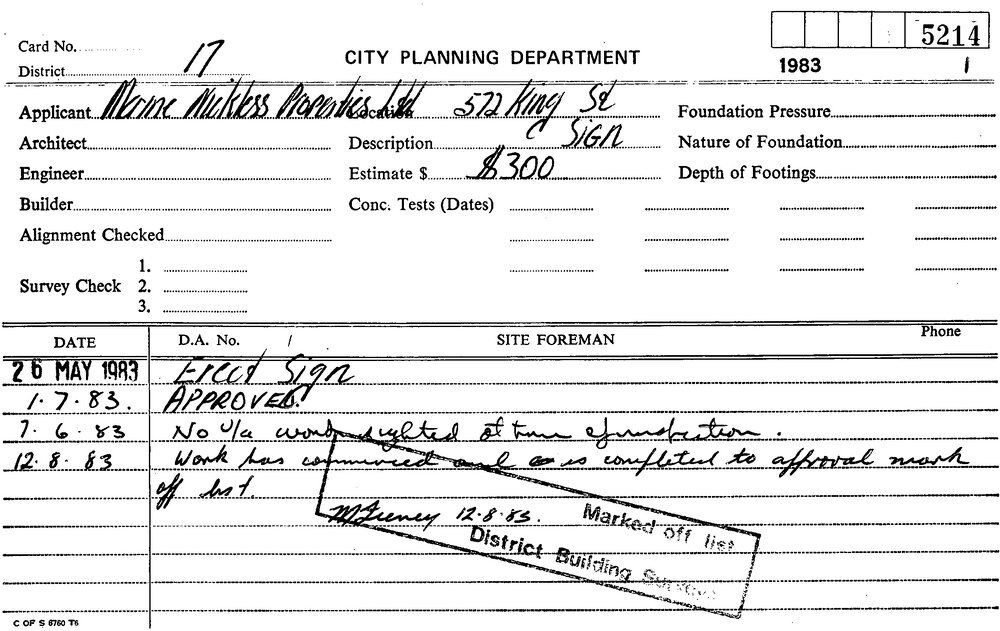 5214
Card No.
17
CITY PLANNING DEPARTMENT
1983 1
District
Applicant Properties Ltd Location 572 King St Foundation Pressure
Architect Description Sign Nature of Foundation
Engineer Estimate $ $300 Depth of Footings
Builder Conc. Tests (Dates)
Alignment Checked
1.
Survey Check 2.
3.
DATE D.A. No. / SITE FOREMAN Phone
26 MAY 1983 Erect Sign
1.7.83. APPROVED
7.6.83 No u/a work sighted at time of inspection.
12.8.83 Work has commenced and is completed to approval mark
off list.
12.8.83. Marked off list
District Building Surveyor
C OF S 6760 T6